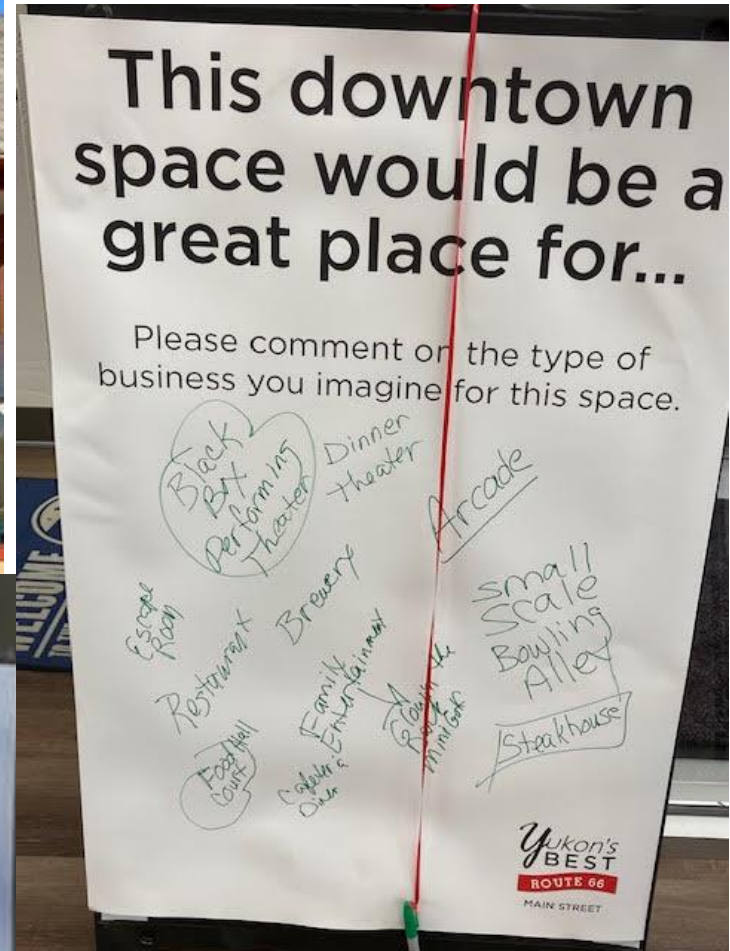 This downtown
space would be a
great place for...
Please comment on the type of
business you imagine for this space.
Black
Box
Performing
Theater
Dinner
theater
Arcade
Escape
Room
Restaurant
Brewery
Family
Entertainment
small
Scale
Bowling
Alley
the
Mini Golf
Steakhouse
Food Hall
Court
Diner
Yukon's
BEST
ROUTE 66
MAIN STREET
WELCOME